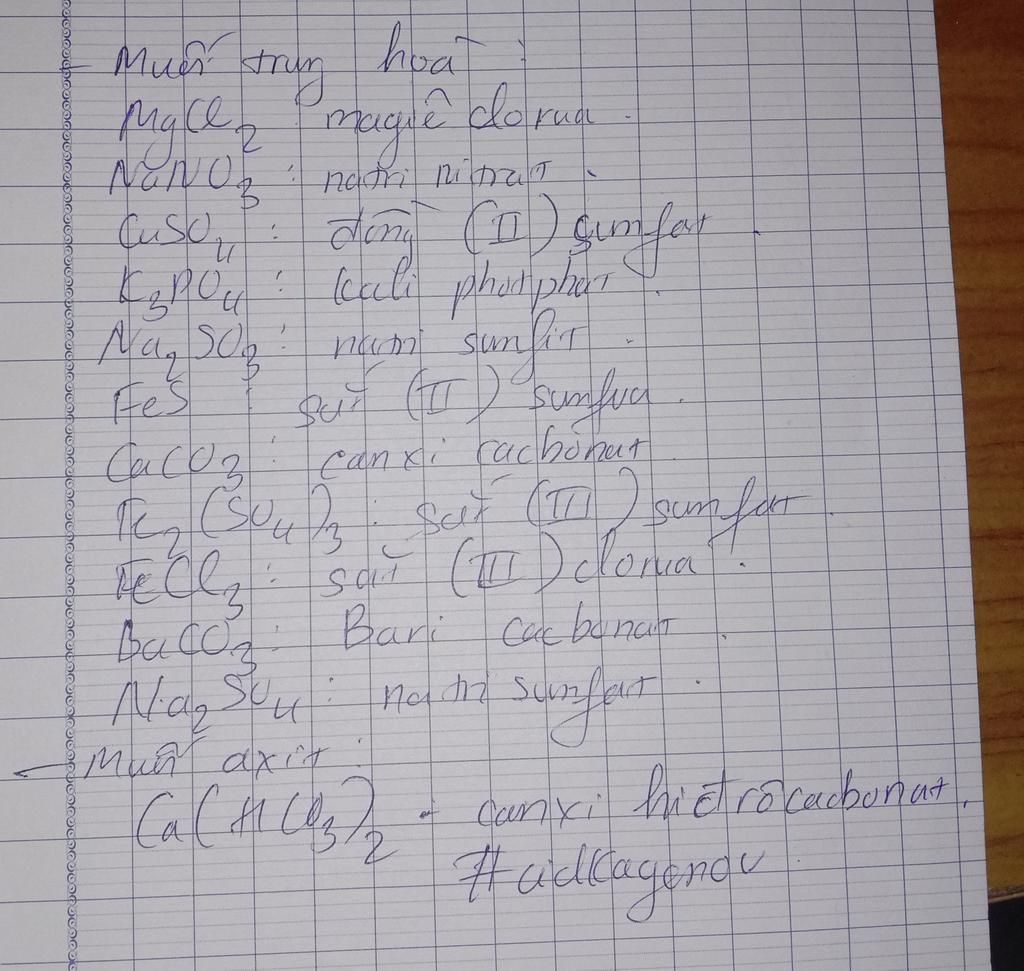 - Muối trung hoà :
MgCl2 : magiê clorua .
NaNO3 : natri nitrat .
CuSO4 : đồng (II) sumfat .
K3PO4 : kali phatphat .
Na2SO3 : natri sunfit .
FeS : sắt (II) sumfua .
CaCO3 : canxi cacbonat
Fe2(SO4)3 : sắt (III) sumfat .
FeCl3 : sắt (III) clorua .
BaCO3 : Bari cacbonat .
Na2SO4 : natri sunfat .
- Muối axit :
Ca(HCO3)2 - canxi hiđrôcacbonat .
#adkagenov .